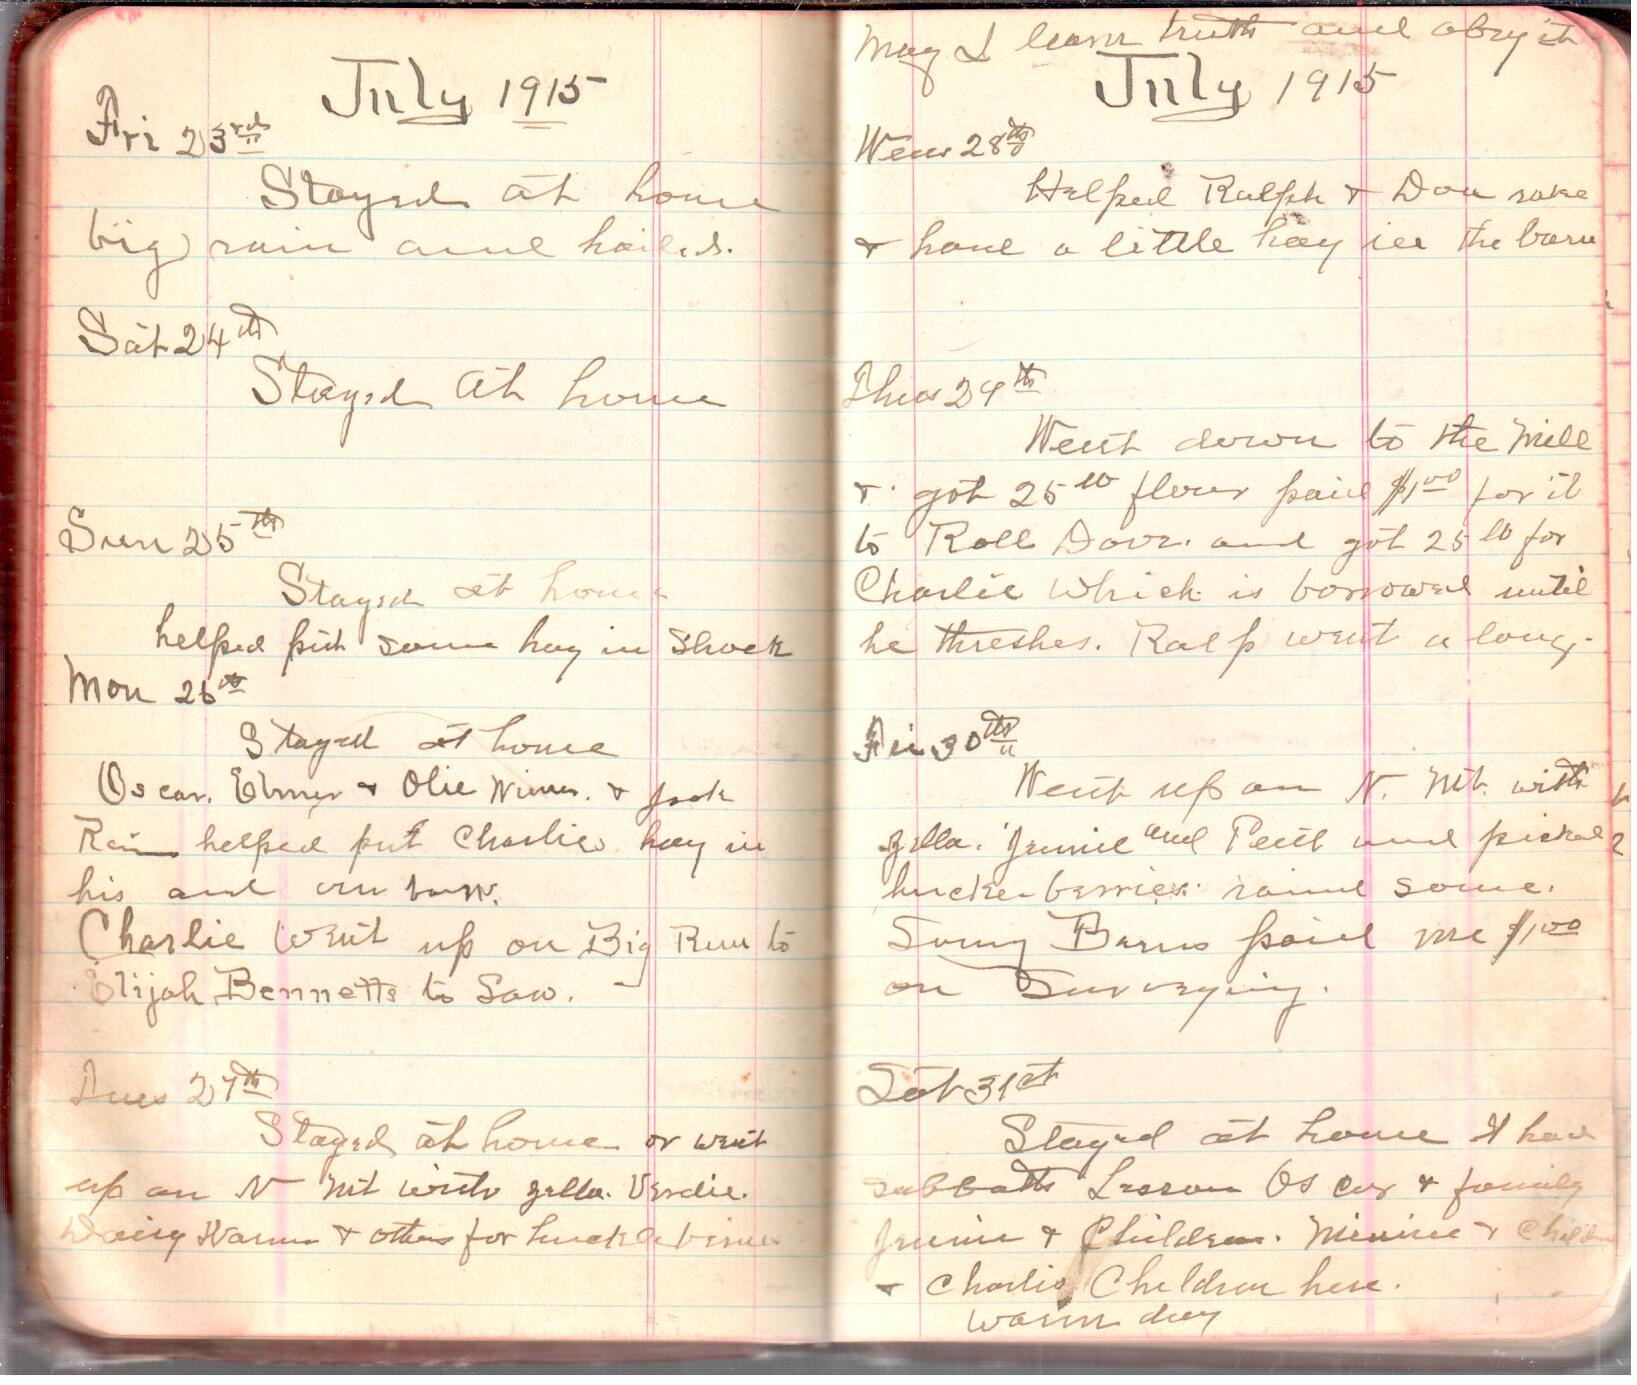 July 1915
Fri 23rd
Stayed at home
big rain and hailed.
Sat 24th
Stayed at home
Sun 25th
Stayed at home
helped put some hay in Shock
Mon 26th
Stayed at home
Oscar. Elmer & Olie Wimer. & Jack
helped put Charlies hay in
his and our barn.
Charlie went up on Big Run to
Elijah Bennetts to Saw.
Tues 27th
Stayed at home or went
up on N Mt with Zella. Verdie.
Daisy & others for huckleberries
May I learn truth and obey it
July 1915
Wens 28th
Helped Ralph & Don rake
& haul a little hay in the barn
Thus 29th
Went down to the Mill
& got 25 lb flour paid $1.00 for it
to Roll Dove. and got 25 lb for
Charlie which is borrowed until
he threshes. Ralp went a long.
Fri 30th
Went up on N. Mt. with
Zella. Jennie and and picked
huckelberries. raind some.
paid me $1.00
on Surveying.
Sat 31st
Stayed at home & had
sabbath Lesson Oscar & family
Jennie & Children. Minnie & Children
& Charlis Children here.
warm day